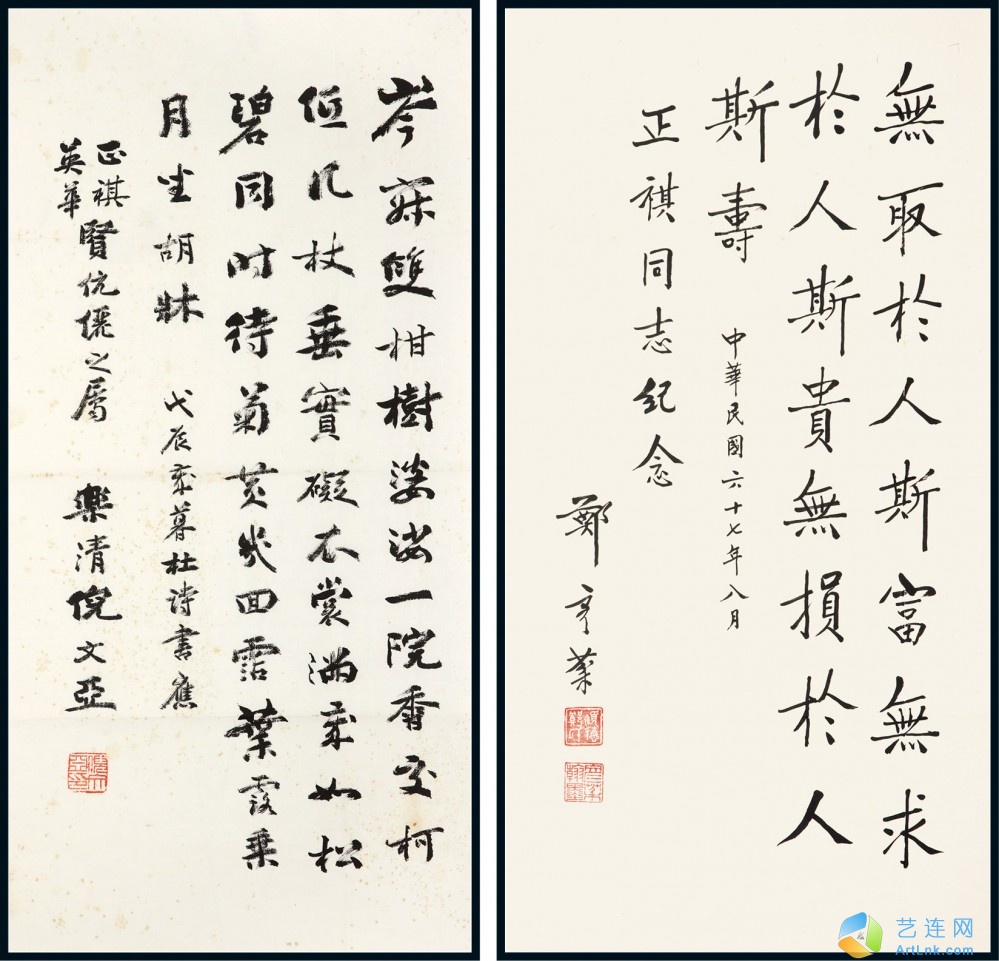 無取於人斯富無求
於人斯貴無損於人
斯壽 中華民國六十七年八月
正祺同志紀念
鄭彥棻
岑寂雙柑樹婆娑一院香交柯
低几杖垂實礙衣裳滿歲如松
碧同時待菊黃幾回霑葉露乘
月坐胡牀 戊辰歲暮杜詩書應
正祺
英華
賢伉儷之屬 樂清倪文亞
艺连网
ArtLnk.com